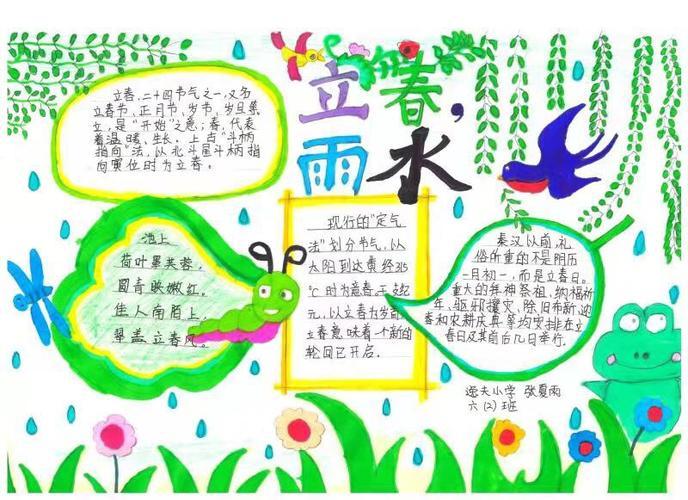 立春,
雨水
立春,二十四节气之一,又名
立春节、正月节、岁节、岁旦等
立,是“开始”之意;春,代表
着温暖、生长。上古“斗柄
指向”法,以北斗星斗柄指
向寅位时为立春。
池上
荷叶罩芙蓉,
圆青映嫩红。
佳人南陌上,
翠盖立春风。
现行的“定气
法”划分节气,以
太阳到达黄经315
℃时为立春,
元,以立春为岁首
立春意味着一个新的
轮回已开启.
秦汉以前,礼
俗所重的不是阴历
一月初一,而是立春日。
重大的拜神祭祖、纳福祈
年、驱邪攘灾、除旧布新迎
春和农耕庆典等均安排在立
春日及其前后几日举行.
逸夫小学 张夏雨
六(2)班